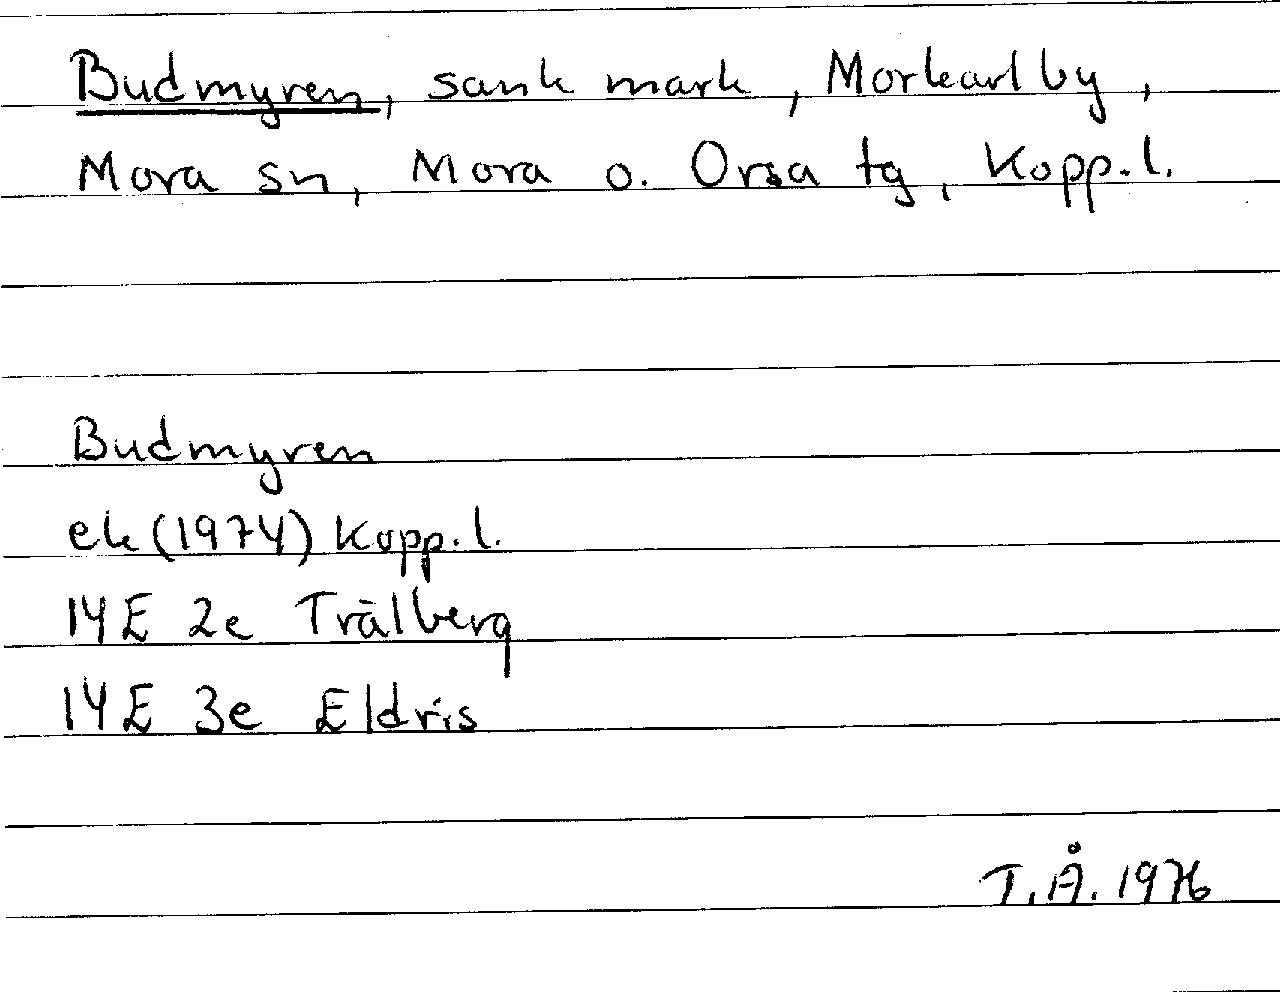 Budmyren, sank mark, Morkarlby,
Mora sn, Mora o. Orsa tg, Kopp.l.
Budmyren
ek (1974) Kopp.l.
14E 2e Trälberg
14E 3e Eldris
T.Å. 1976